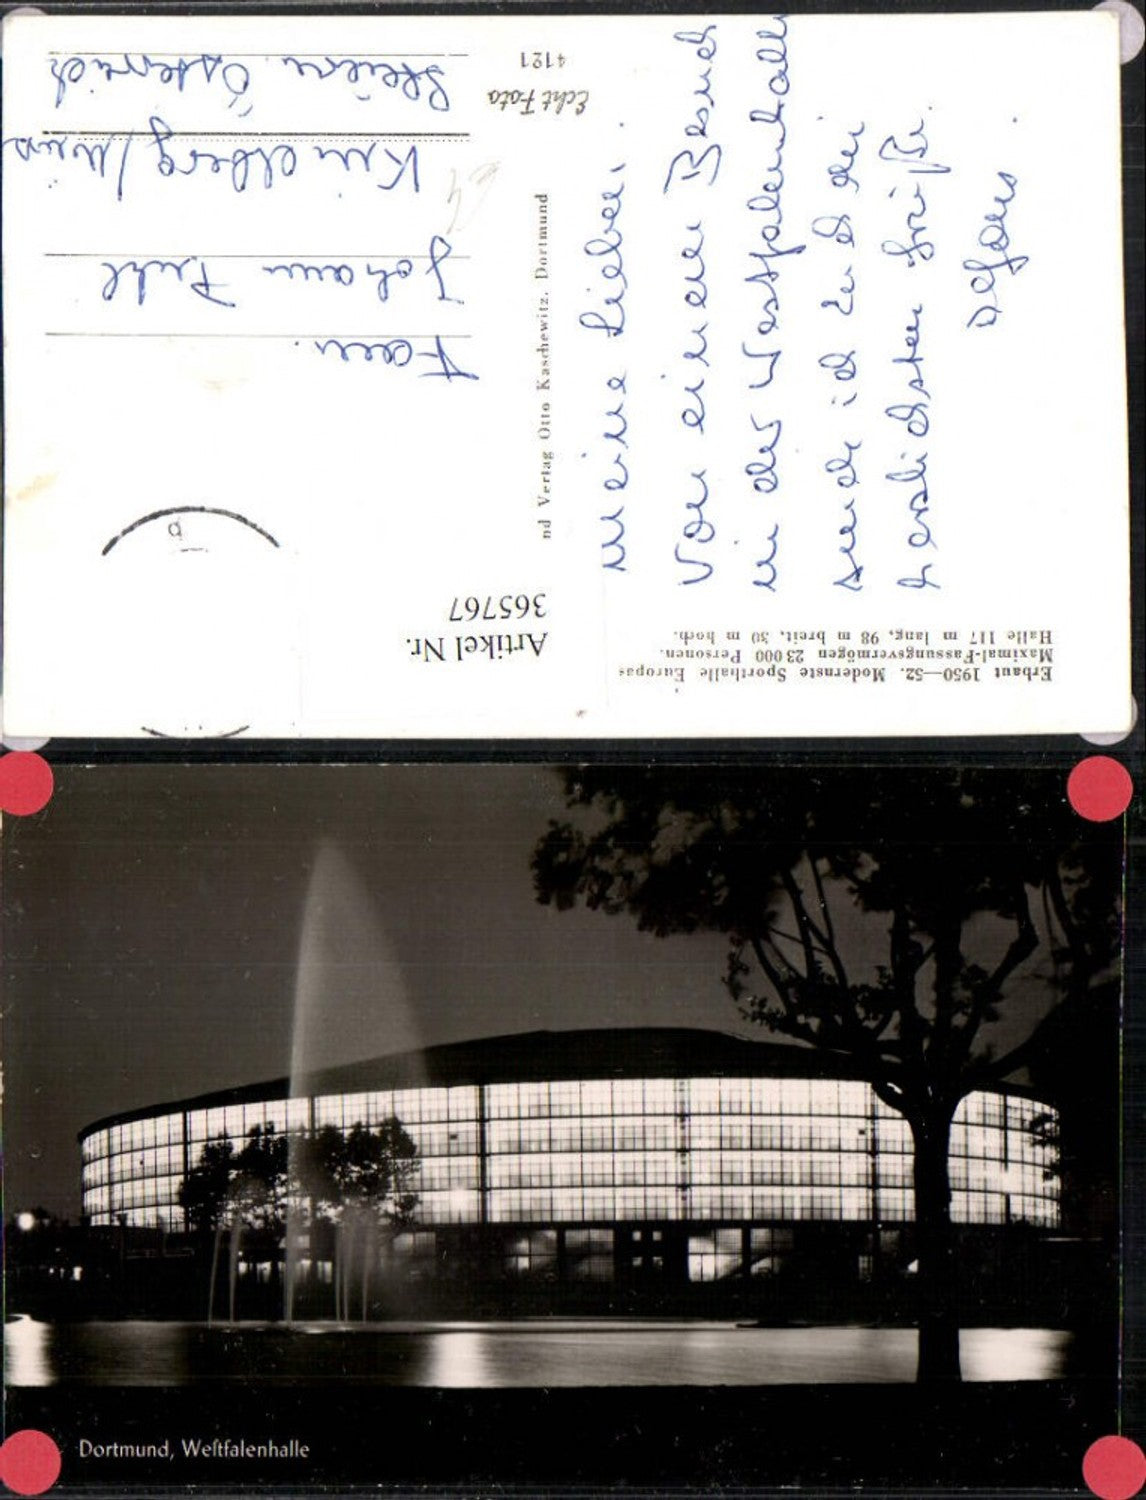 Erbaut 1950—52. Modernste Sporthalle Europas
Maximal-Fassungsvermögen 23 000 Personen.
Halle 117 m lang, 98 m breit, 30 m hoch.
Meine Lieben,
Von einem Besuch
in der Westfalenhalle
sende ich Euch die
herzlichsten Grüße.
Artikel Nr.
365767
nd Verlag Otto Kaschewitz, Dortmund
Echt Foto
4121
Fam.
Johann
Krieglach
Österreich
Dortmund, Weſtfalenhalle